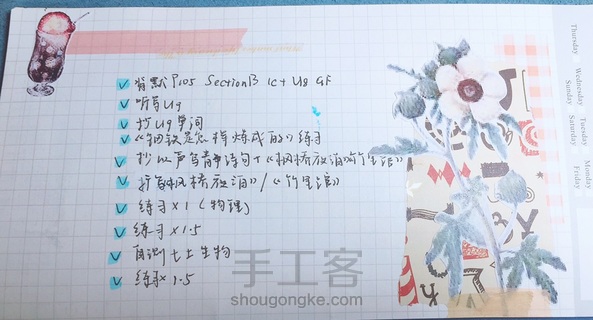 背默P105 Section B 1c + U8 GF
听写U9
抄U9单词
《钢铁是怎样炼成的》练习
抄 以声 诗句+《枫桥夜泊》《竹里馆》
《枫桥夜泊》/《竹里馆》
练习×1(物理)
练习×1.5
自测七上生物
练习×1.5
Thursday
Friday
Saturday
Sunday
Monday
Tuesday
Wednesday
Thursday
Friday
手工客
shougongke.com